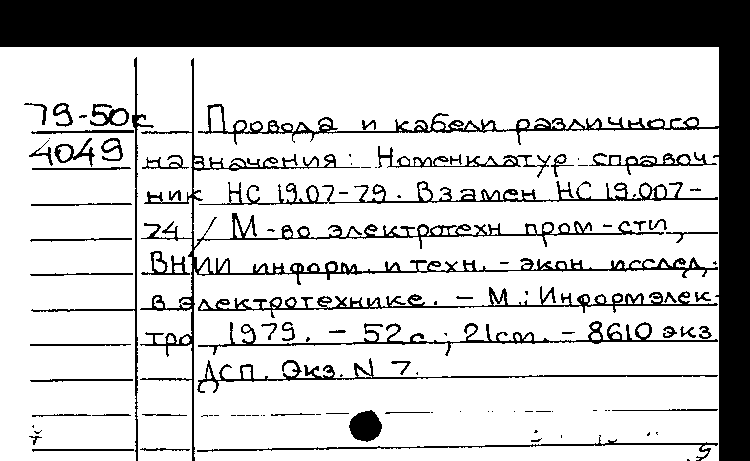 79-50к Провода и кабели различного
4049 назначения: Номенклатур. справоч-
ник НС 19.07-79. Взамен НС 19.007-
74 / М-во электротехн пром-сти,
ВНИИ информ. и техн.-экон. исслед.
в электротехнике. – М.: Информэлек-
тро, 1979. – 52 с.; 21 cm. – 8610 экз.
ДСП. Экз. N 7.